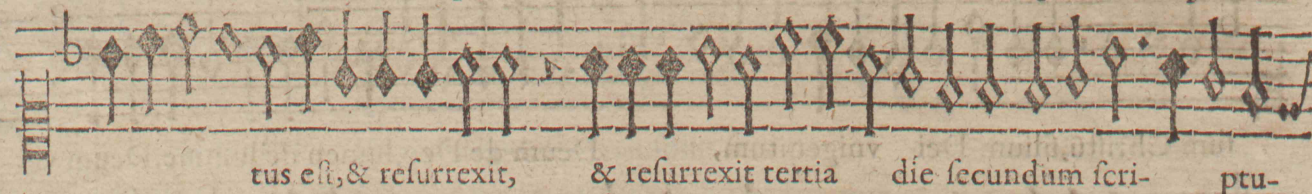 tus eſt,& reſurrexit, & reſurrexit tertia die ſecundum ſcri- ptu-